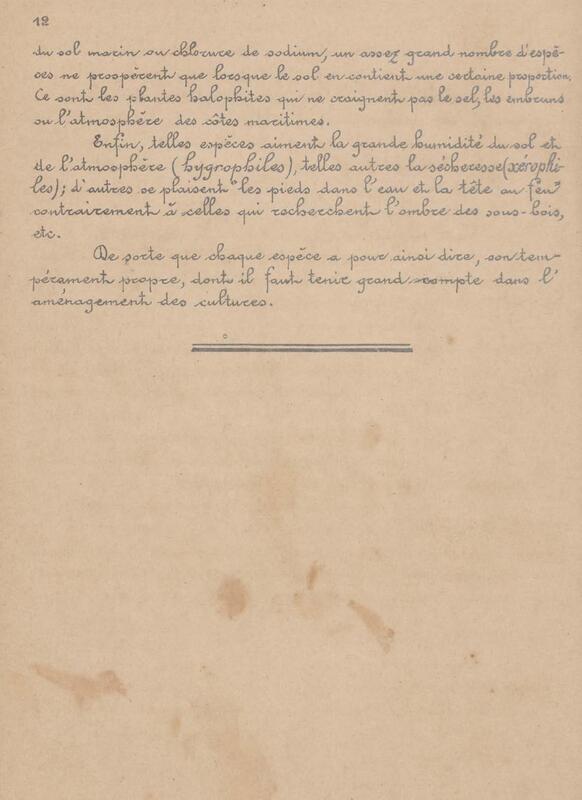 12
du sol marin ou chlorure de sodium, un assez grand nombre d'espè-
ces ne prospèrent que lorsque le sol en contient une certaine proportion.
Ce sont les plantes halophites qui ne craignent pas le sel, les embruns
ou l'atmosphère des côtes maritimes.
Enfin, telles espèces aiment la grande humidité du sol et
de l'atmosphère (hygrophiles), telles autres la sécheresse (xérophi-
les); d'autres se plaisent "les pieds dans l'eau et la tête au feu"
contrairement à celles qui recherchent l'ombre des sous-bois,
etc.
De sorte que chaque espèce a pour ainsi dire, son tem-
pérament propre, dont il faut tenir grand compte dans l'
aménagement des cultures.